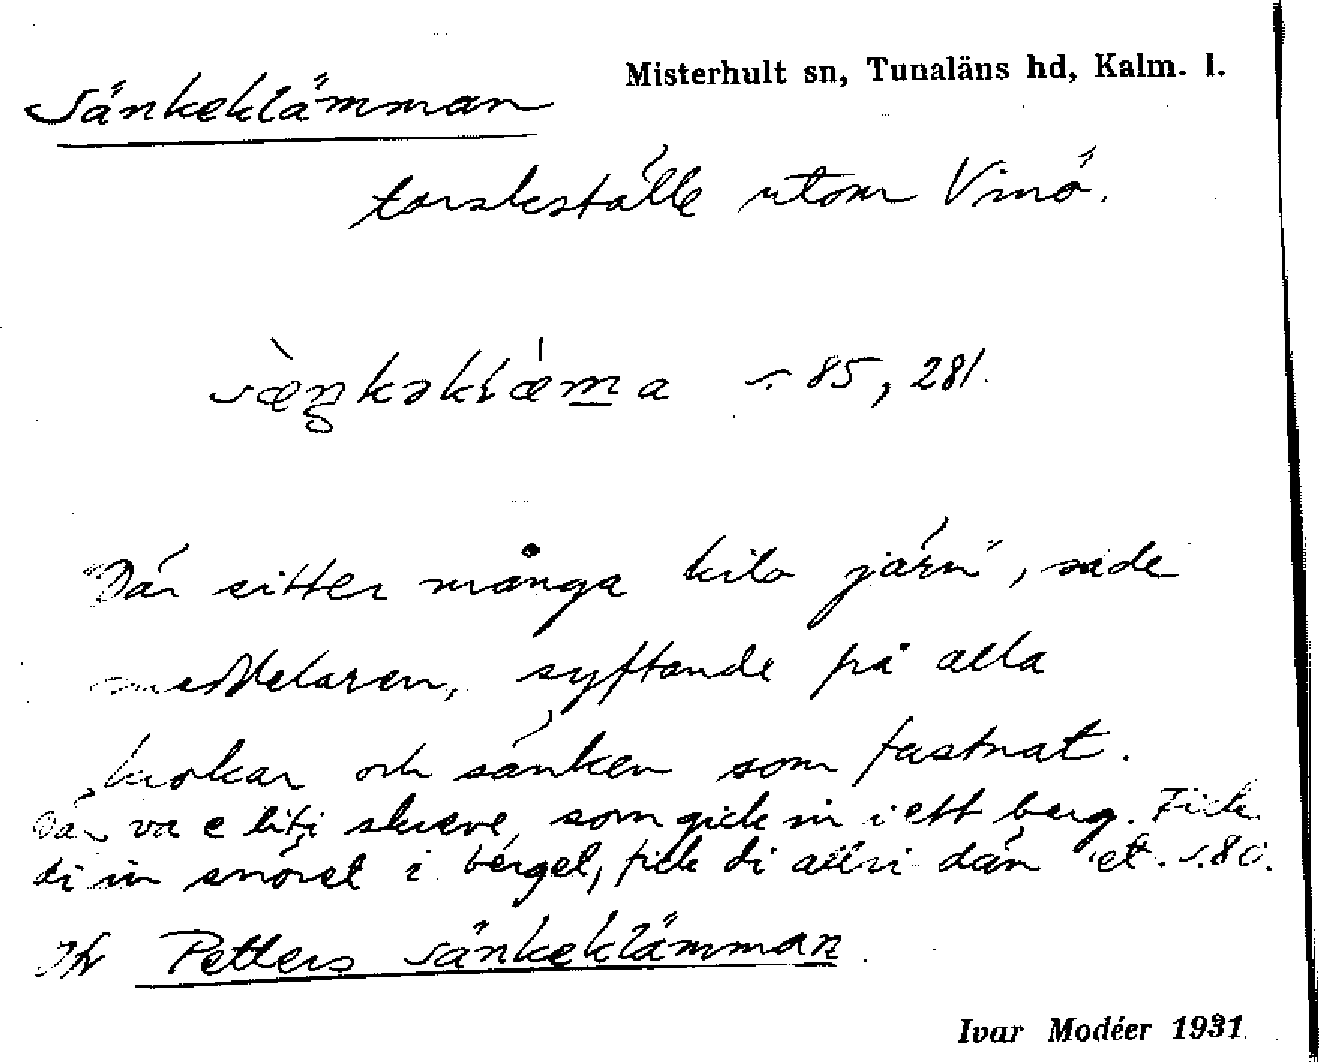 Misterhult sn, Tunaläns hd, Kalm. l.
Sänkeklämman
torskställe utom Vinö.
sæŋkəklæma s. 85, 281.
Där sitter många kilo järn", sade
meddelaren, syftande på alla
krokar och sänken som fastnat.
Där va e liti skreve, som gick in i ett berg. Fick
di in snöret i berget, fick di aldri dän 'et. s. 80.
Petters sänkeklämman.
Ivar Modéer 1931